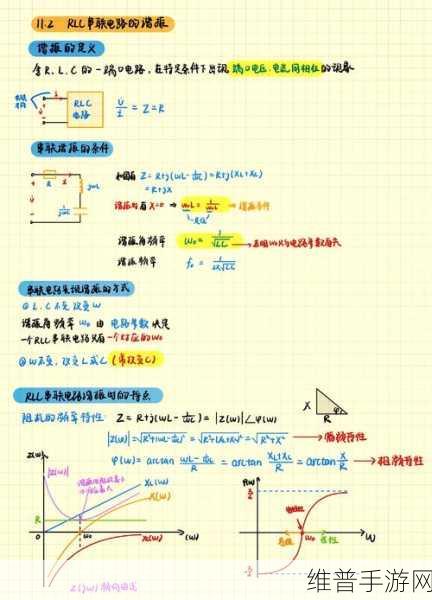 11.2 RLC串联电路的谐振
谐振的定义
含R、L、C的一端口电路,在特定条件下出现端口电压、电流同相位的现象
RLC
电路
U̇/İ = Z = R
串联谐振的条件
R
jωL
1/jωC
Z = R+j(ωL-1/ωC) = R+j(XL+XC)
= R+jX
谐振时有 X=0 ⇒ ωL = 1/ωC ⇒ 谐振条件
谐振角频率 ω₀ = 1/√LC
谐振频率 f₀ = 1/2π√LC
串联电路实现谐振的方式
① L、C不变 改变ω
谐振角频率 ω₀ 由 电路参数 决定
一个RLC串联电路只有一个对应的ω₀
② ω不变,改变L或C (常改变C)
RLC串联电路谐振时的特点
阻抗的频率特性: Z = R+j(ωL-1/ωC) = |Z(ω)|∠φ(ω)
|Z(ω)| = √R²+(ωL-1/ωC)² = √R²+(XL+XC)² = √R²+X² → 幅频特性
φ(ω) = arctan (ωL-1/ωC)/R = arctan (XL+XC)/R = arctan X/R → 相频特性
X
R
φ
Z(ω)
|Z(ω)|
XL(ω)
X(ω)
R
0
ω₀
(ω)
XC(ω)
φ(ω)
π/2
0
容性
ω₀
感性
-π/2
维普手游网